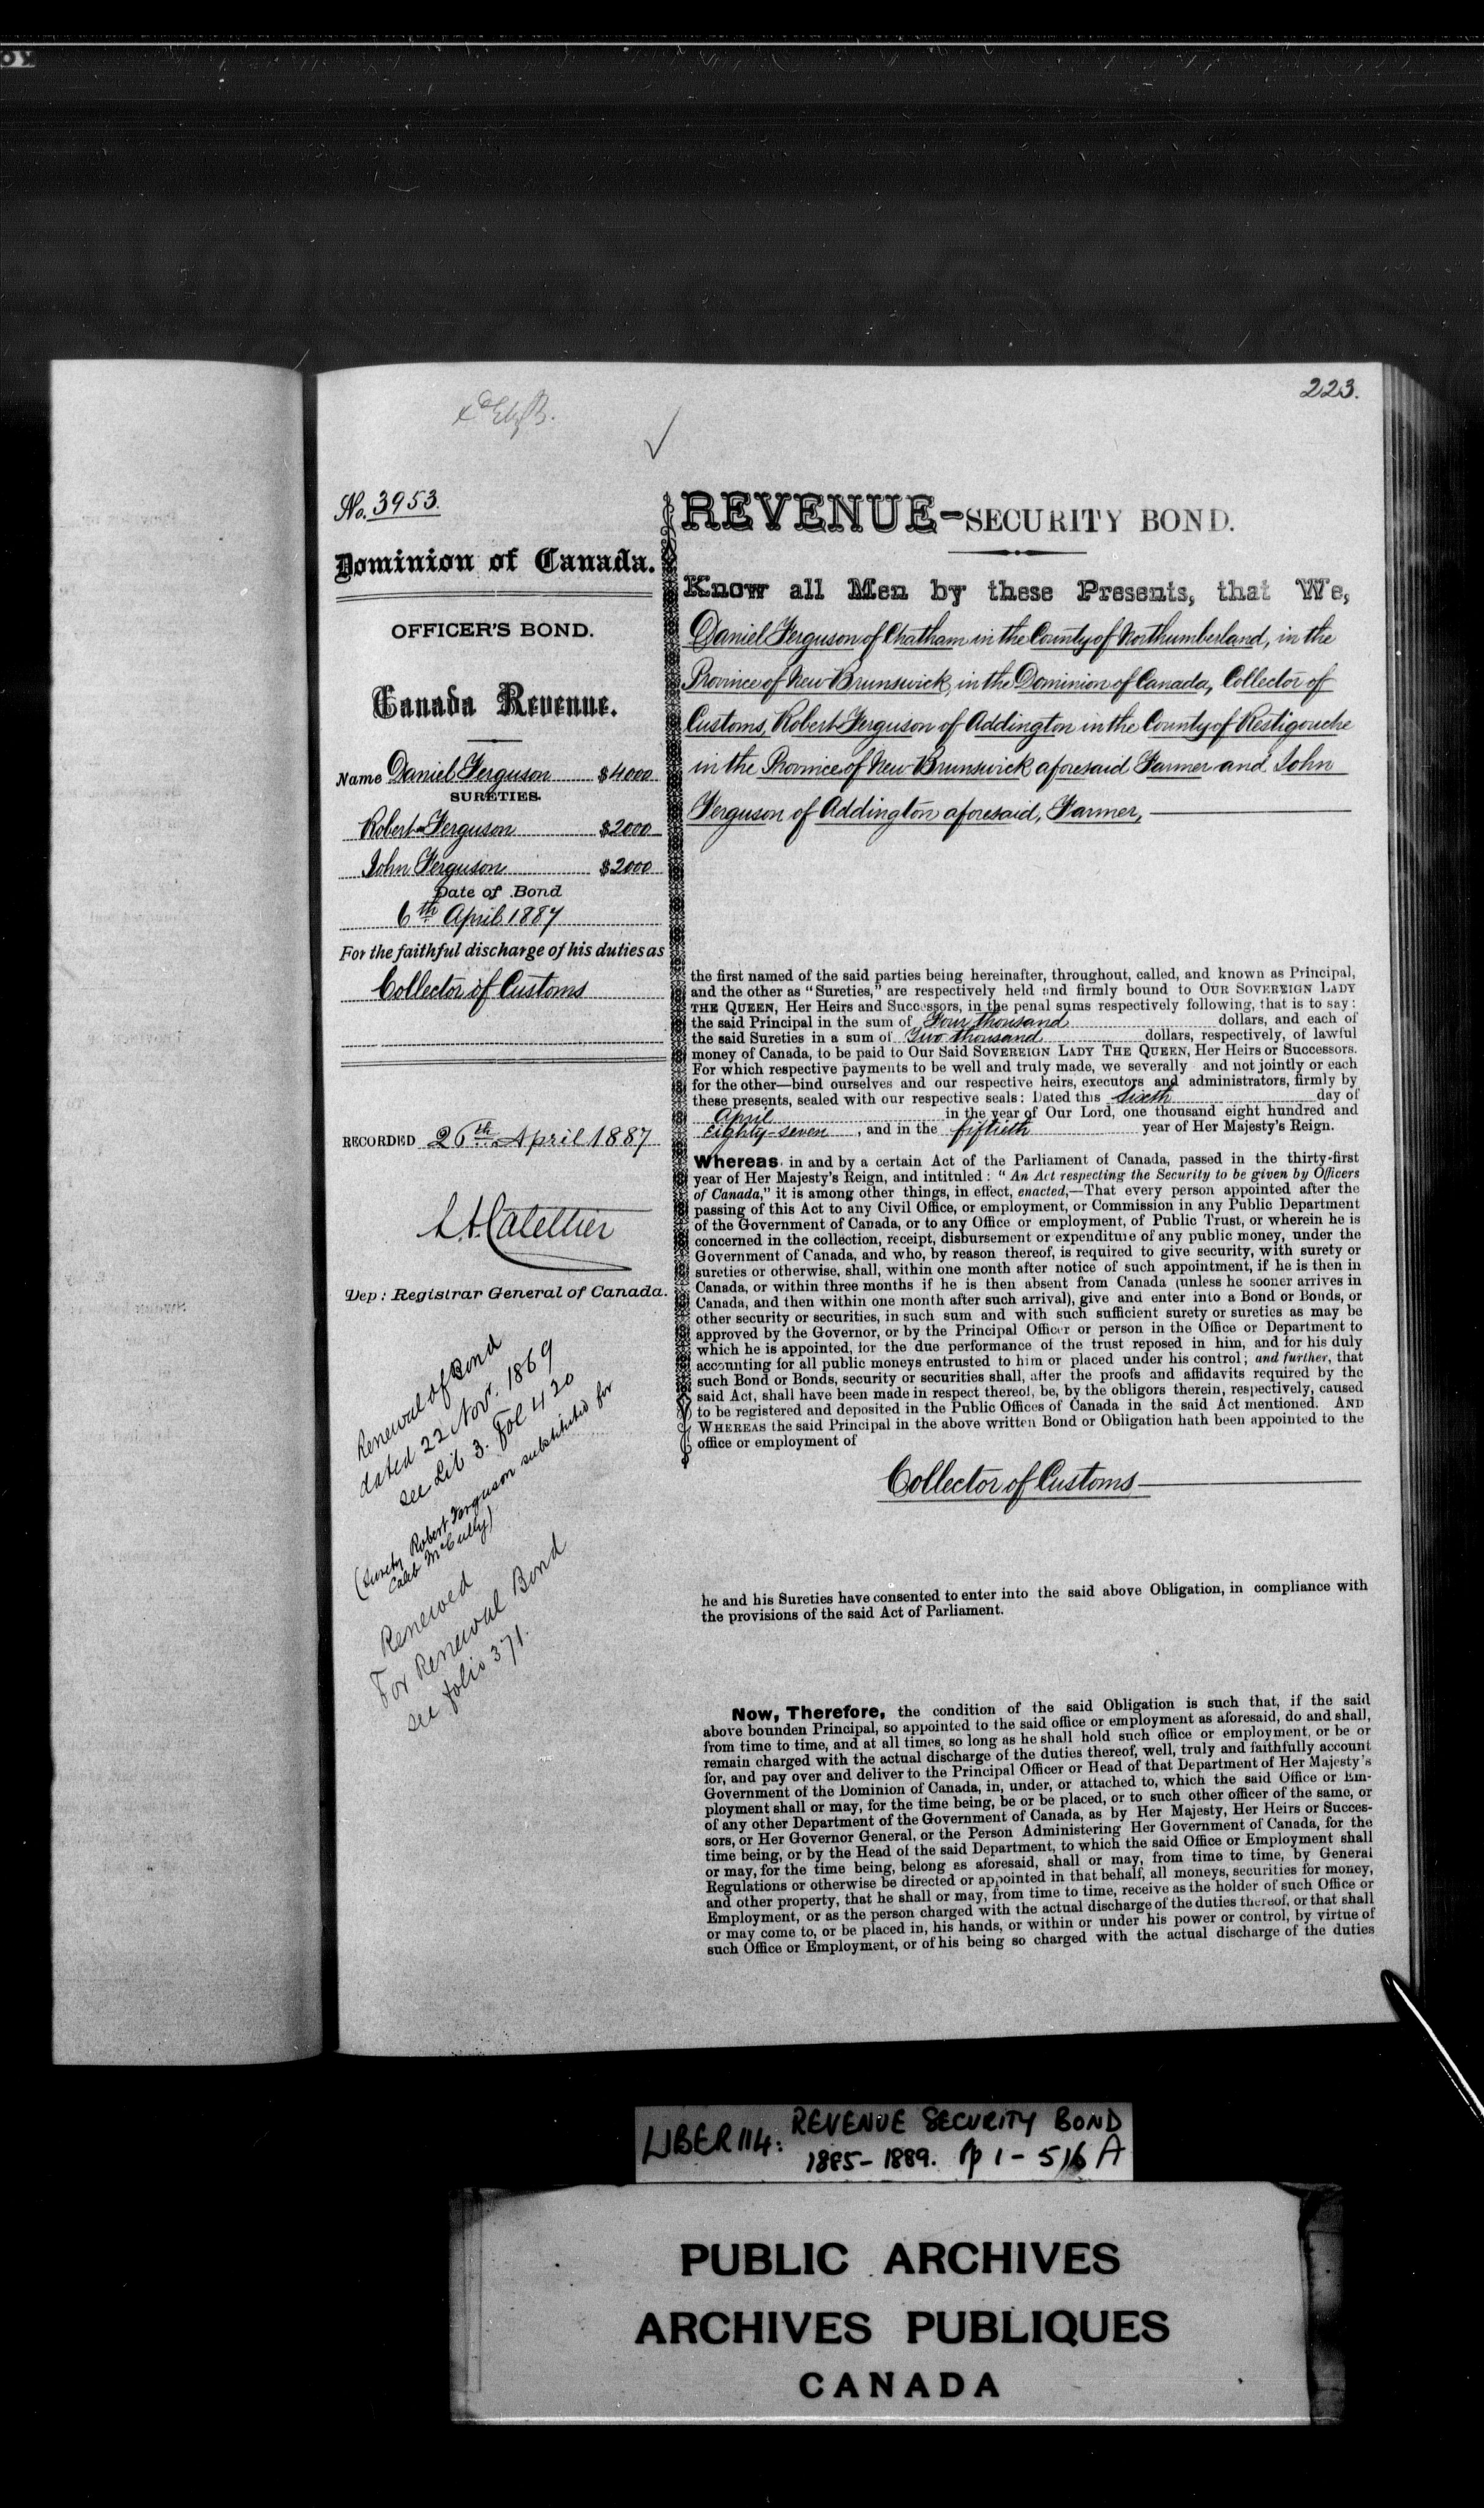 223.
No. 3953.
Dominion of Canada.
OFFICER'S BOND.
Canada Revenue.
Name Daniel Ferguson $4000
SURETIES.
Robert Ferguson $2000
John Ferguson $2000
Date of Bond
6th April 1887
For the faithful discharge of his duties as
Collector of Customs
RECORDED 26th April 1887
L. A. Catellier
Dep: Registrar General of Canada.
Renewal of Bond
dated 22 Nov. 1869
see Lib 3. Fol 420
(Surety Robert Ferguson substituted for
Caleb McCully)
Renewed
For Renewal Bond
see folio 371.
REVENUE-SECURITY BOND.
Know all Men by these Presents, that We,
Daniel Ferguson of Chatham in the County of Northumberland, in the
Province of New Brunswick, in the Dominion of Canada, Collector of
Customs, Robert Ferguson of Addington in the County of Restigouche
in the Province of New Brunswick aforesaid Farmer and John
Ferguson of Addington aforesaid, Farmer,
the first named of the said parties being hereinafter, throughout, called, and known as Principal,
and the other as "Sureties," are respectively held and firmly bound to OUR SOVEREIGN LADY
THE QUEEN, Her Heirs and Successors, in the penal sums respectively following, that is to say:
the said Principal in the sum of Four thousand dollars, and each of
the said Sureties in a sum of Two thousand dollars, respectively, of lawful
money of Canada, to be paid to Our Said SOVEREIGN LADY THE QUEEN, Her Heirs or Successors.
For which respective payments to be well and truly made, we severally and not jointly or each
for the other—bind ourselves and our respective heirs, executors and administrators, firmly by
these presents, sealed with our respective seals: Dated this sixth day of
April in the year of Our Lord, one thousand eight hundred and
Eighty-seven, and in the fiftieth year of Her Majesty's Reign.
Whereas in and by a certain Act of the Parliament of Canada, passed in the thirty-first
year of Her Majesty's Reign, and intituled: "An Act respecting the Security to be given by Officers
of Canada," it is among other things, in effect, enacted,—That every person appointed after the
passing of this Act to any Civil Office, or employment, or Commission in any Public Department
of the Government of Canada, or to any Office or employment, of Public Trust, or wherein he is
concerned in the collection, receipt, disbursement or expenditure of any public money, under the
Government of Canada, and who, by reason thereof, is required to give security, with surety or
sureties or otherwise, shall, within one month after notice of such appointment, if he is then in
Canada, or within three months if he is then absent from Canada (unless he sooner arrives in
Canada, and then within one month after such arrival), give and enter into a Bond or Bonds, or
other security or securities, in such sum and with such sufficient surety or sureties as may be
approved by the Governor, or by the Principal Officer or person in the Office or Department to
which he is appointed, for the due performance of the trust reposed in him, and for his duly
accounting for all public moneys entrusted to him or placed under his control; and further, that
such Bond or Bonds, security or securities shall, after the proofs and affidavits required by the
said Act, shall have been made in respect thereof, be, by the obligors therein, respectively, caused
to be registered and deposited in the Public Offices of Canada in the said Act mentioned. AND
WHEREAS the said Principal in the above written Bond or Obligation hath been appointed to the
office or employment of
Collector of Customs
he and his Sureties have consented to enter into the said above Obligation, in compliance with
the provisions of the said Act of Parliament.
Now, Therefore, the condition of the said Obligation is such that, if the said
above bounden Principal, so appointed to the said office or employment as aforesaid, do and shall,
from time to time, and at all times, so long as he shall hold such office or employment, or be or
remain charged with the actual discharge of the duties thereof, well, truly and faithfully account
for, and pay over and deliver to the Principal Officer or Head of that Department of Her Majesty's
Government of the Dominion of Canada, in, under, or attached to, which the said Office or Em-
ployment shall or may, for the time being, be or be placed, or to such other officer of the same, or
of any other Department of the Government of Canada, as by Her Majesty, Her Heirs or Succes-
sors, or Her Governor General, or the Person Administering Her Government of Canada, for the
time being, or by the Head of the said Department, to which the said Office or Employment shall
or may, for the time being, belong as aforesaid, shall or may, from time to time, by General
Regulations or otherwise be directed or appointed in that behalf, all moneys, securities for money,
and other property, that he shall or may, from time to time, receive as the holder of such Office or
Employment, or as the person charged with the actual discharge of the duties thereof, or that shall
or may come to, or be placed in, his hands, or within or under his power or control, by virtue of
such Office or Employment, or of his being so charged with the actual discharge of the duties
LIBER 114: REVENUE SECURITY BOND
1885-1889. pp 1-516A
PUBLIC ARCHIVES
ARCHIVES PUBLIQUES
CANADA